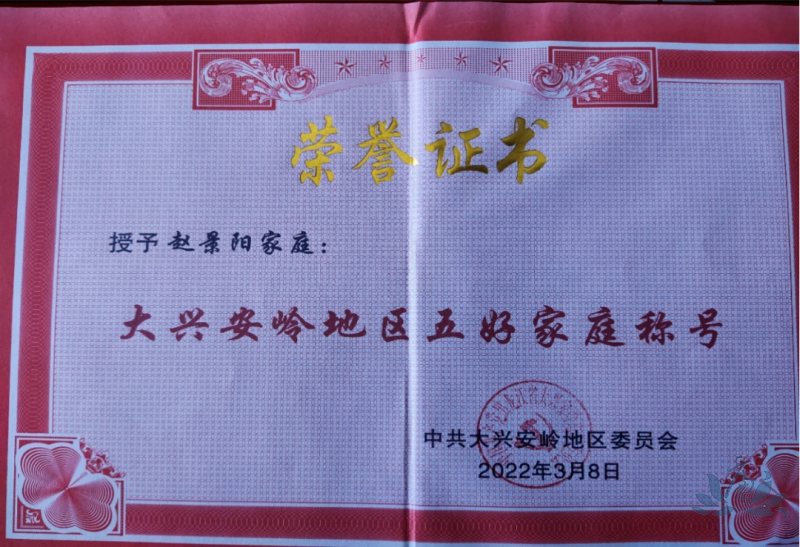 荣誉证书
授予赵景阳家庭：
大兴安岭地区五好家庭称号
中共大兴安岭地区委员会
2022年3月8日